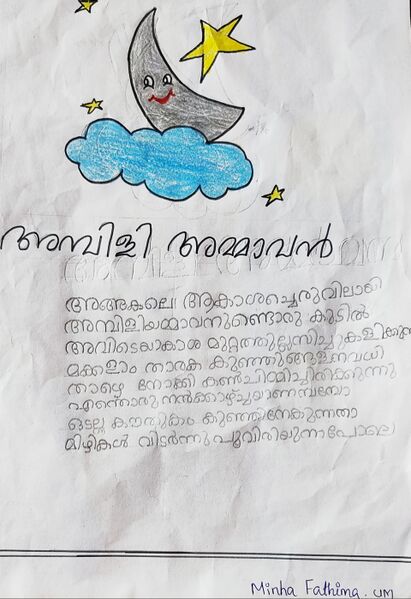 അമ്പിളി അമ്മാവൻ
അങ്ങകലെ ആകാശച്ചെരുവിലായി
അമ്പിളിയമ്മാവനുണ്ടൊരു കുടിൽ
അവിടെയാകാശ മുറ്റത്തുല്ലസിച്ചു കളിക്കുന്നു
മക്കളാം താരക കുഞ്ഞുങ്ങളനവധി
താഴെ നോക്കി കൺചിമ്മിച്ചിരിക്കുന്നു
എന്തൊരു നൽക്കാഴ്ച്ചയാണമ്പമ്പോ
കൗതുകം
മിഴികൾ വിടർന്നു പൂവിരിയുന്നപോലെ
Minha Fathima. UM